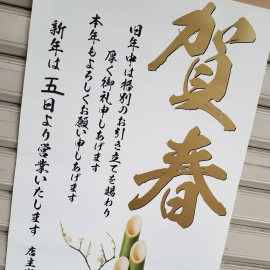 賀春
旧年中は格別のお引き立てを賜わり
厚く御礼申しあげます
本年もよろしくお願い申しあげます
新年は五日より営業いたします
店主